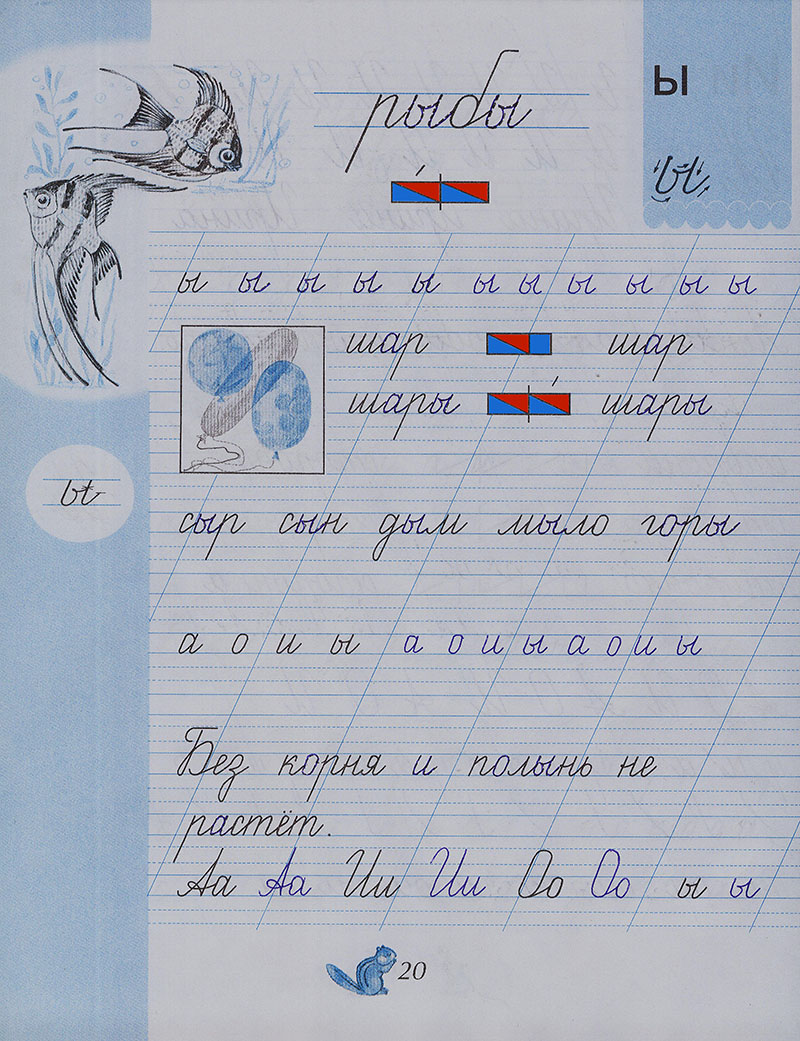 ы
рыбы
ы
ы ы ы ы ы ы ы ы ы ы ы
шар шар
шары шары
ы
сыр сын дым мыло горы
а о и ы а о и ы а о и ы
Без корня и полынь не
растёт.
Аа Аа Ии Ии Оо Оо ы ы
20